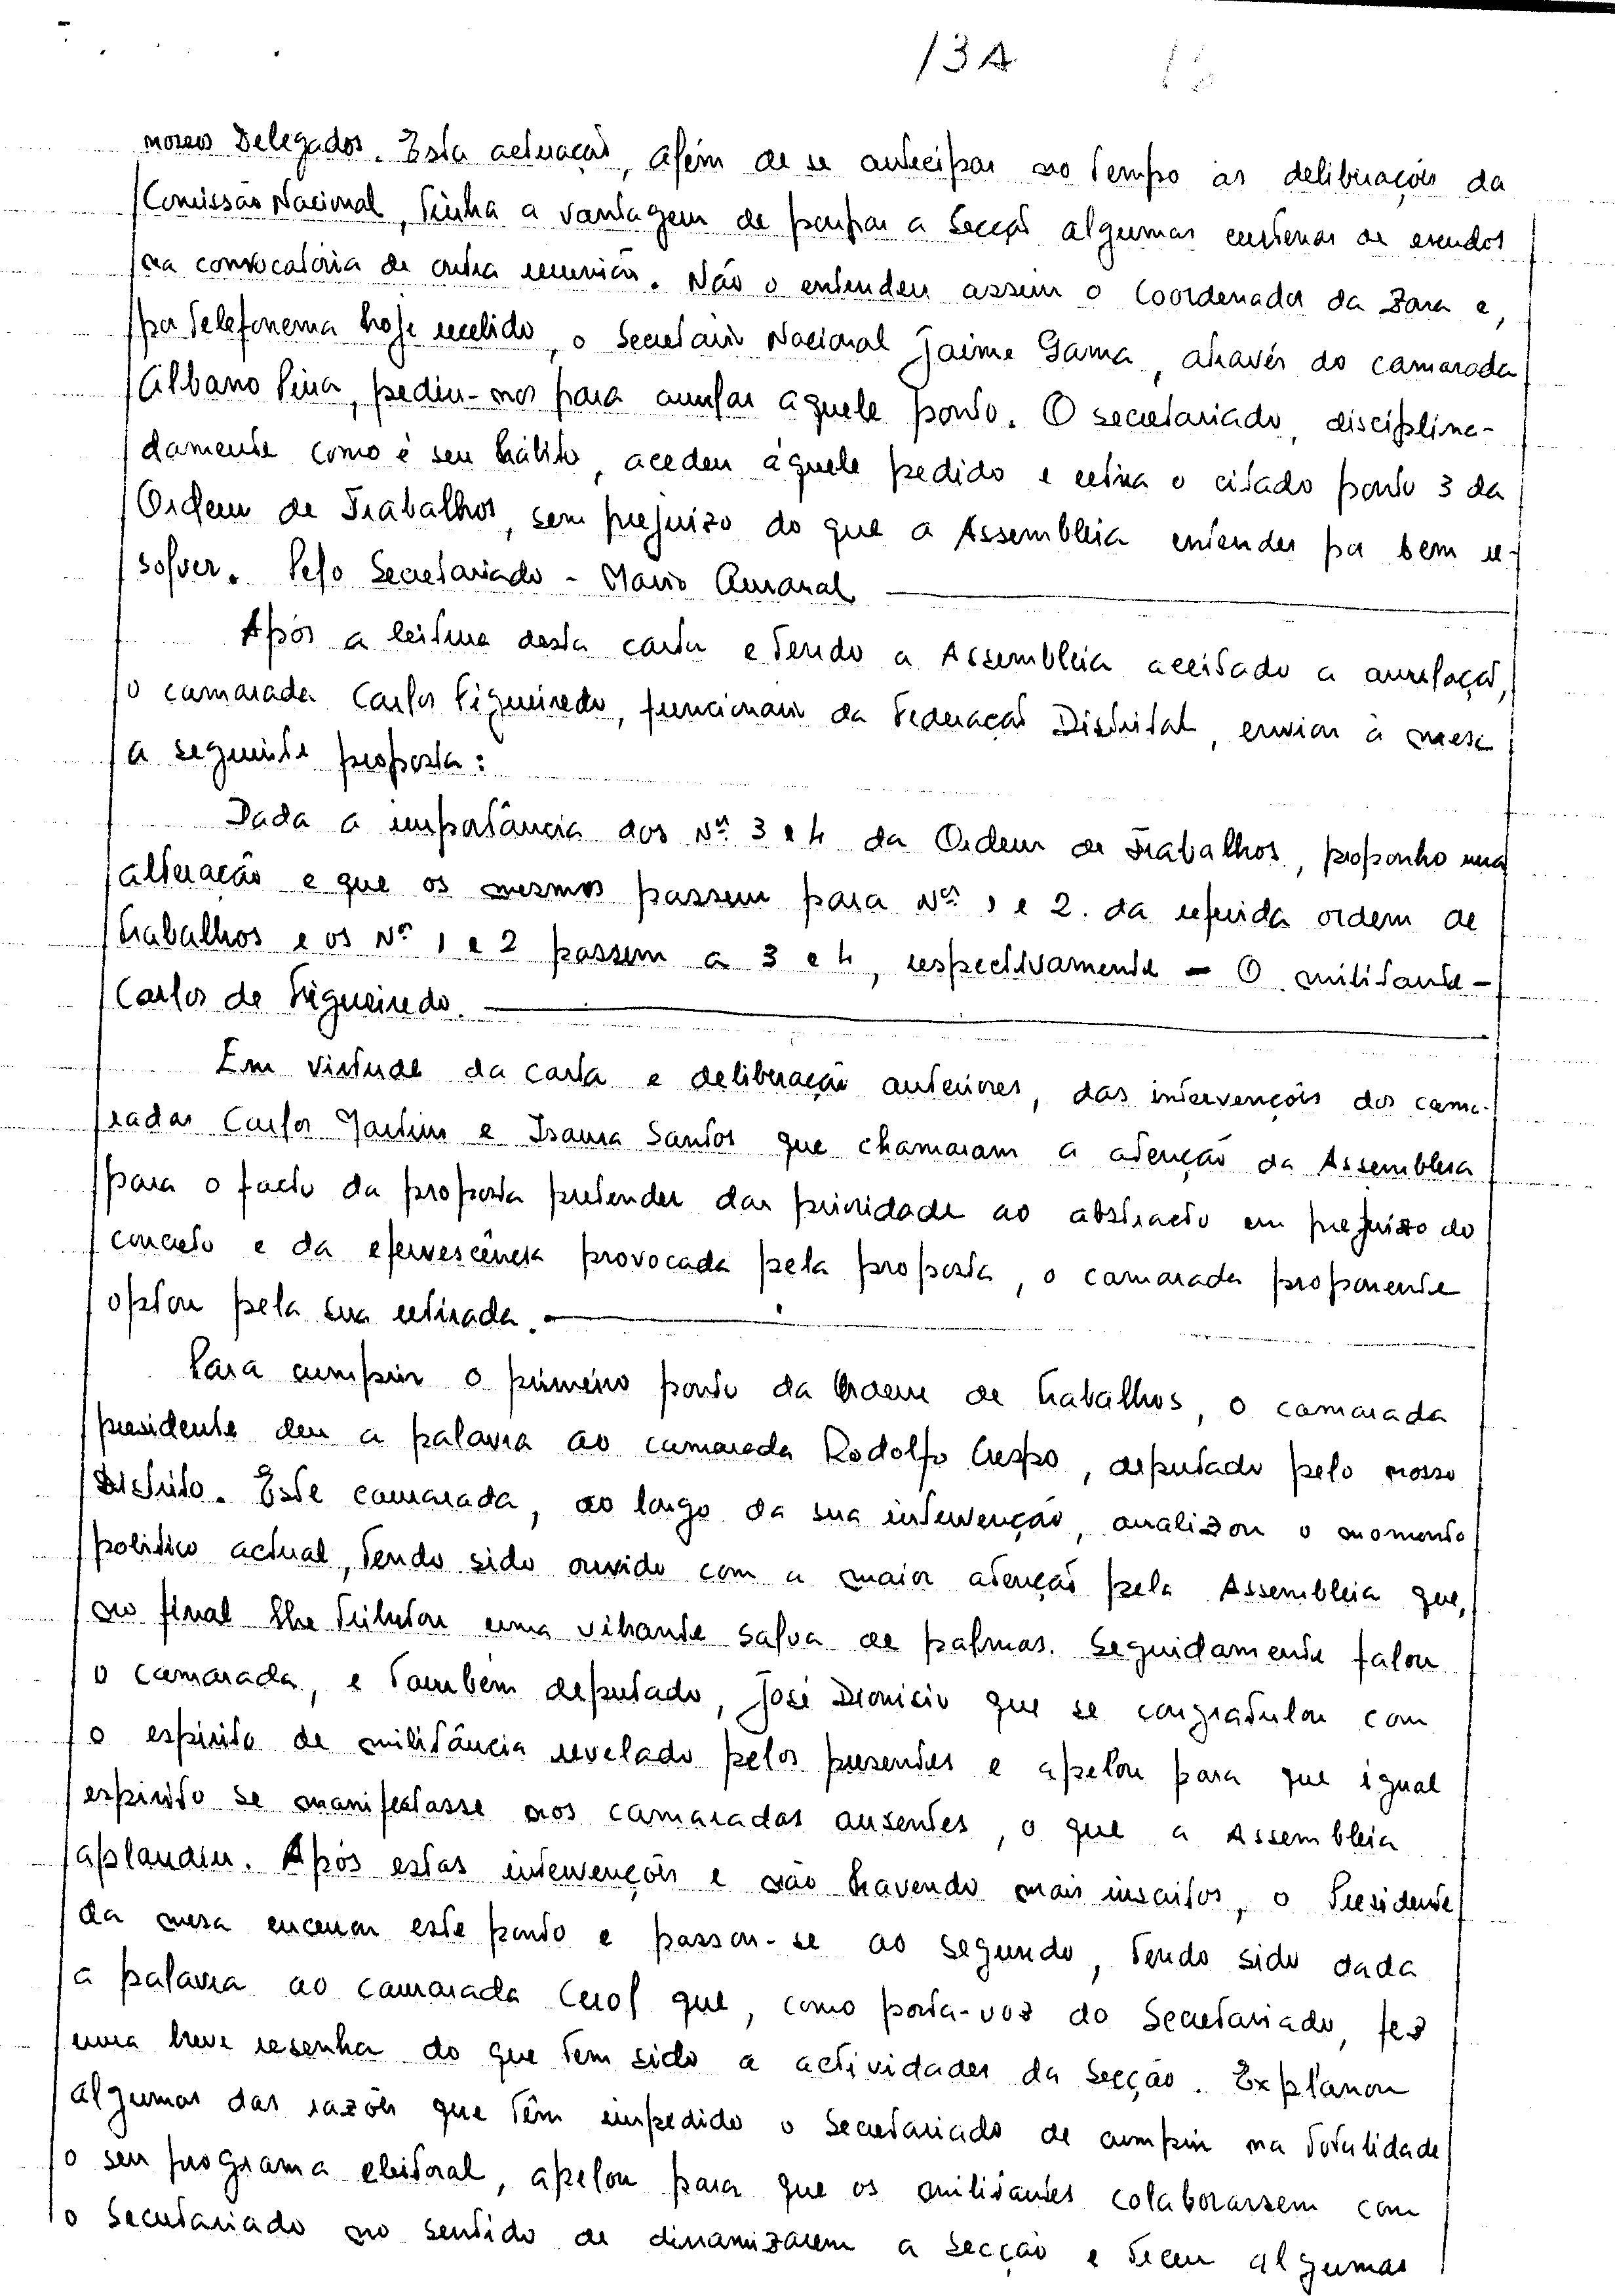 13A
nossos Delegados. Esta actuação, além de se antecipar no tempo às deliberações da
Comissão Nacional, tinha a vantagem de poupar à Secção algumas centenas de escudos
na convocatória de outra reunião. Não o entendeu assim o Coordenador da Zona e,
por telefonema hoje recebido, o Secretário Nacional Jaime Gama, através do camarada
Albano Pina, pediu-nos para anular aquele ponto. O secretariado, disciplina-
damente como é seu hábito, acedeu àquele pedido e retira o citado ponto 3 da
Ordem de Trabalhos, sem prejuízo do que a Assembleia entender por bem re-
solver. Pelo Secretariado - Mário Amaral
Após a leitura desta carta e tendo a Assembleia aceitado a anulação,
o camarada Carlos Figueiredo, funcionário da Federação Distrital, enviou à mesa
a seguinte proposta:
Dada a importância dos Nos. 3 e 4 da Ordem de Trabalhos, proponho uma
alteração e que os mesmos passem para Nos. 1 e 2. da referida ordem de
trabalhos e os Nos 1 e 2 passem a 3 e 4, respectivamente - O militante -
Carlos de Figueiredo.
Em virtude da carta e deliberação anteriores, das intervenções dos cama-
radas Carlos Martins e Isaura Santos que chamaram a atenção da Assembleia
para o facto da proposta pretender dar prioridade ao abstracto em prejuízo do
concreto e da efervescência provocada pela proposta, o camarada proponente
optou pela sua retirada.
Para cumprir o primeiro ponto da Ordem de trabalhos, o camarada
presidente deu a palavra ao camarada Rodolfo Crespo, deputado pelo nosso
Distrito. Este camarada, ao longo da sua intervenção, analizou o momento
politico actual, tendo sido ouvido com a maior atenção pela Assembleia que,
no final lhe tributou uma vibrante salva de palmas. Seguidamente falou
o camarada, e também deputado, José Dionicio que se congratulou com
o espirito de militância revelado pelos presentes e apelou para que igual
espirito se manifestasse nos camaradas ausentes, o que a Assembleia
aplaudiu. Após estas intervenções e não havendo mais inscritos, o Presidente
da mesa encerrou este ponto e passou-se ao segundo, tendo sido dada
a palavra ao camarada Cerol que, como porta-voz do Secretariado, fez
uma breve resenha do que tem sido a actividades da Secção. Explanou
algumas das razões que têm impedido o Secretariado de cumprir na totalidade
o seu programa eleitoral, apelou para que os militantes colaborassem com
o Secretariado no sentido de dinamizarem a secção e teceu algumas